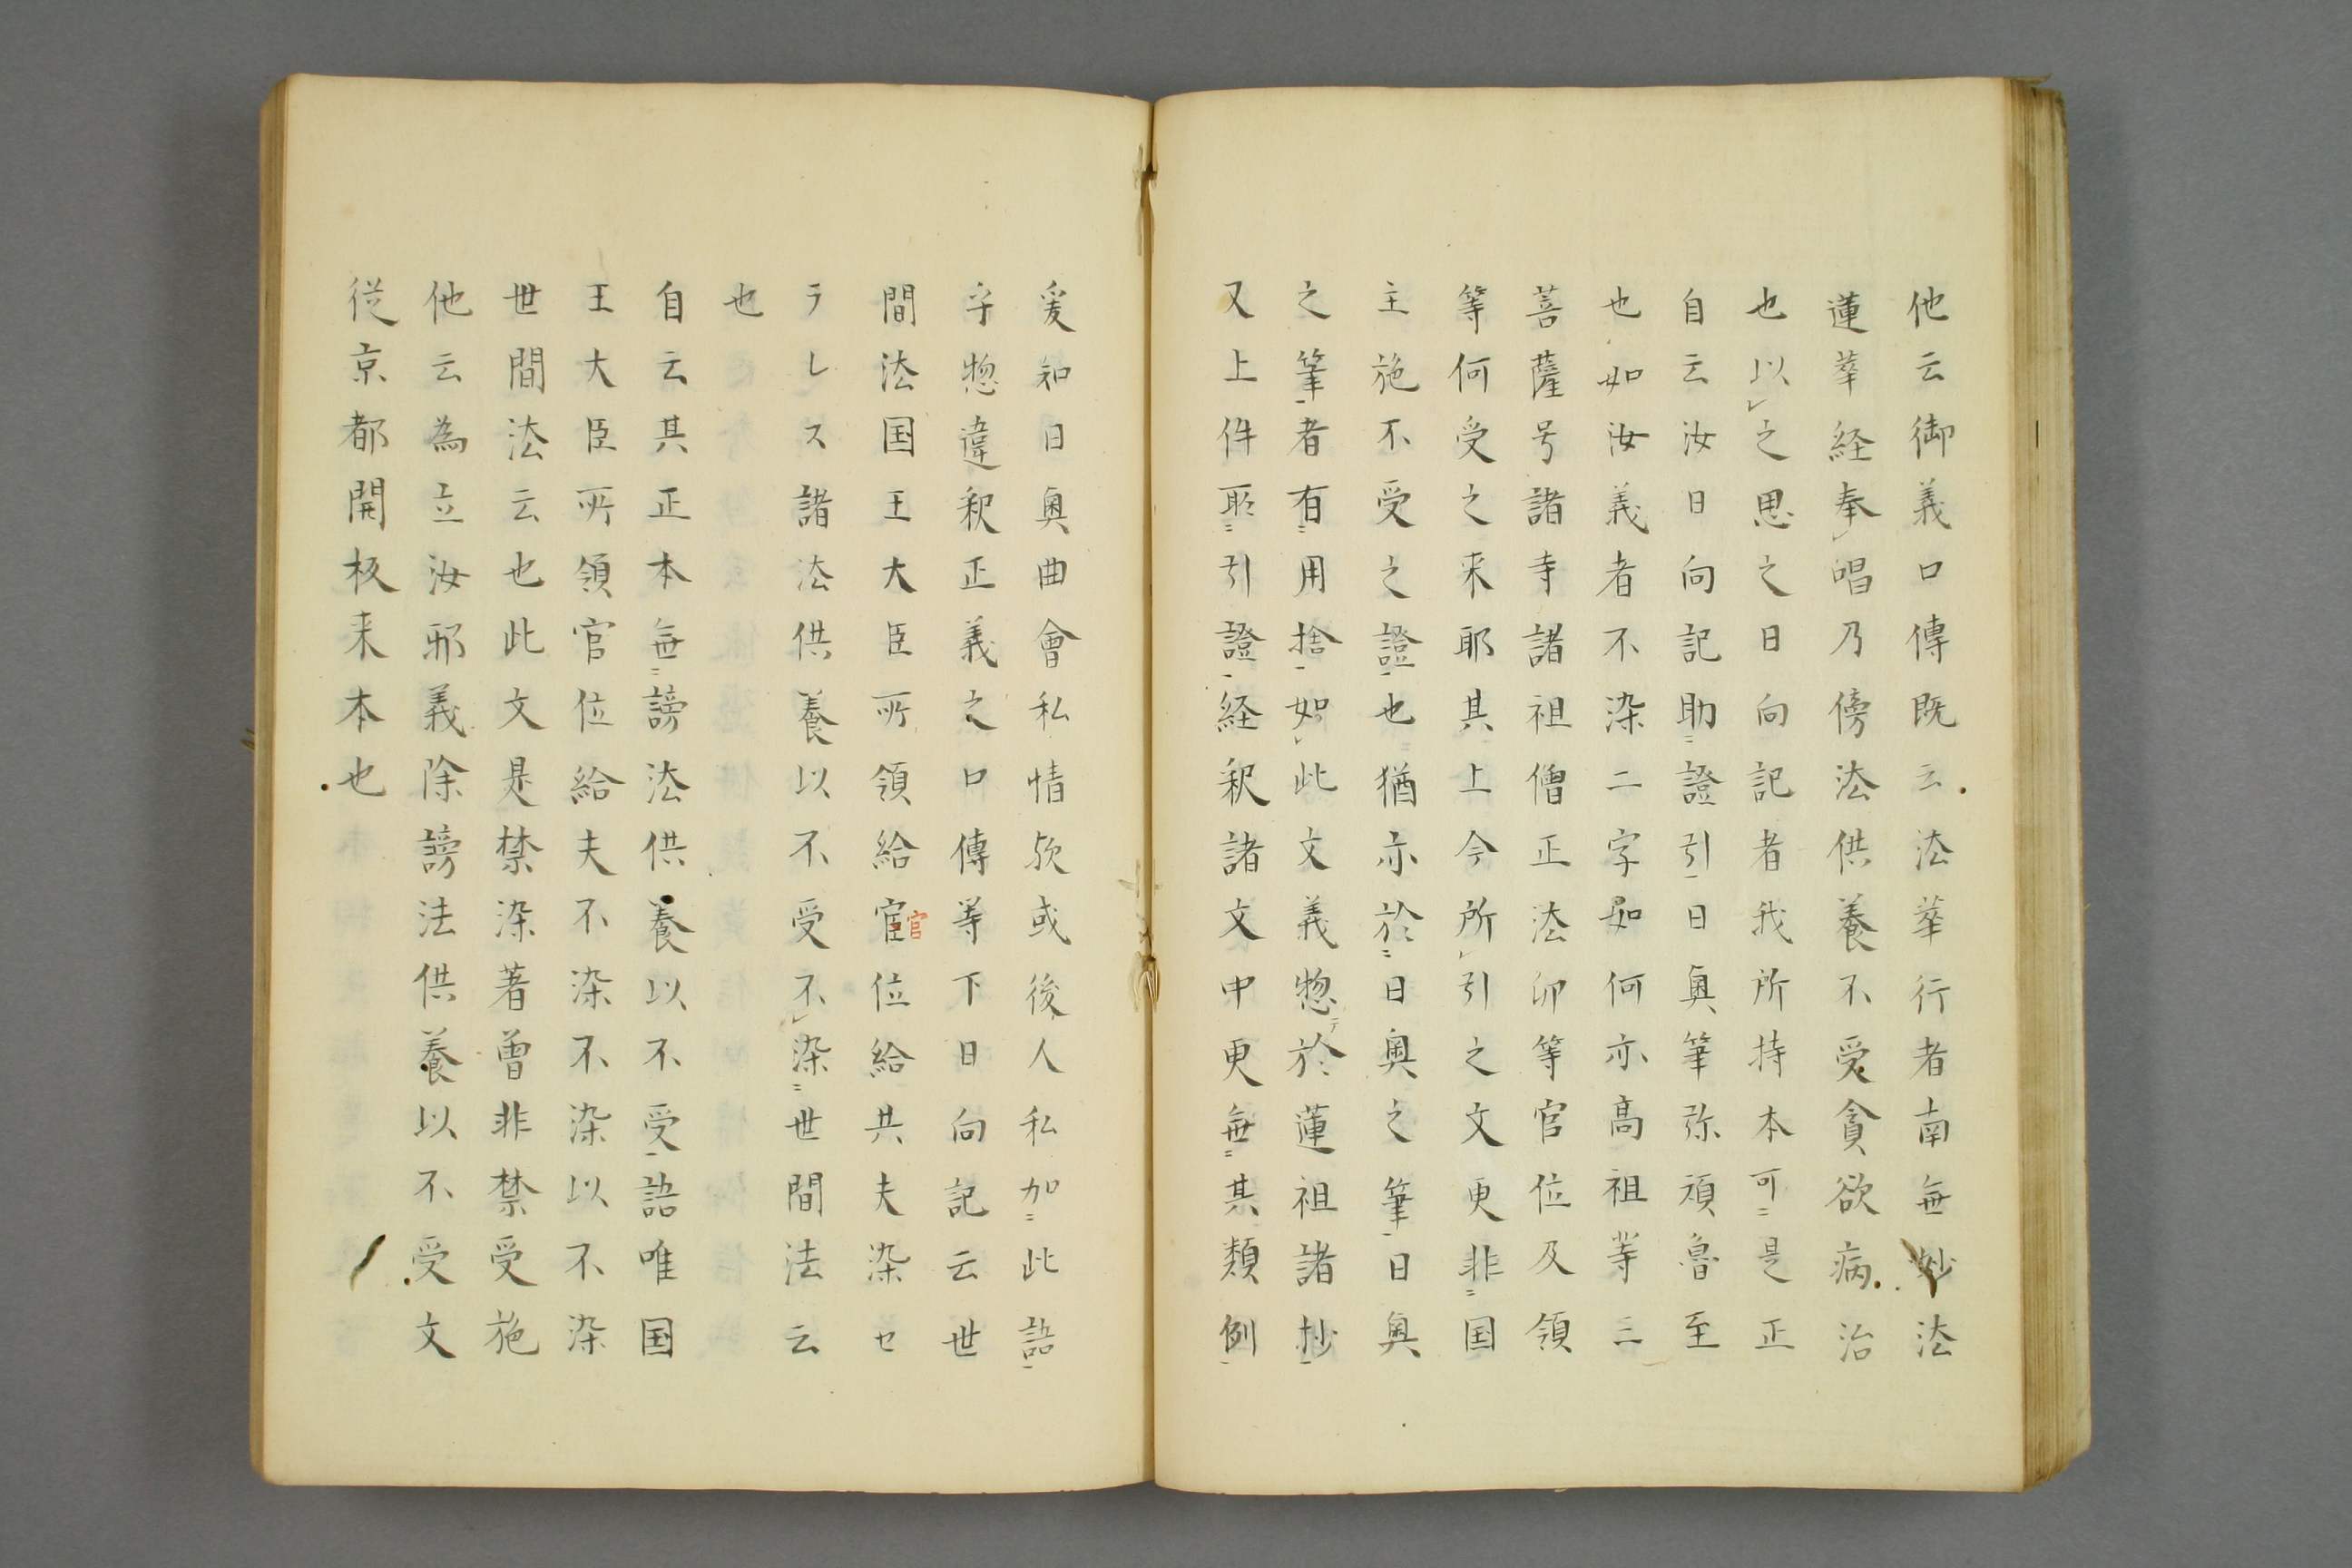 他云御義口傳既云法華行者南無妙法
蓮華経奉レ唱乃傍法供養不受貪欲病治
也以レ之思之日向記者我所持本可二是正
自云汝日向記助二證引一日奥筆弥頑魯至
也如汝義者不染二字如何亦高祖等三
菩薩号諸寺諸祖僧正法印等官位及領
等何受之来耶其上今所レ引之文更非二国
主施不受之證一也猶亦於二日奥之筆一日奥
之筆一者有二用捨一如レ此文義惣テ於蓮祖諸抄一
又上件所二引證一経釈諸文中更無二其類例一
爰知日奥曲會私情欤或後人私加二此語一
乎惣違釈正義之口傳等下日向記云世
間法国王大臣所領給宦官位給共夫染セ
ラレス諸法供養以不受不レ染二世間法云
也
自云其正本無二謗法供養以不受一語唯国
王大臣所領官位給夫不染不染以不染
世間法云也此文是禁染著曽非禁受施
他云為立汝邪義除謗法供養以不受文
従京都開板来本也